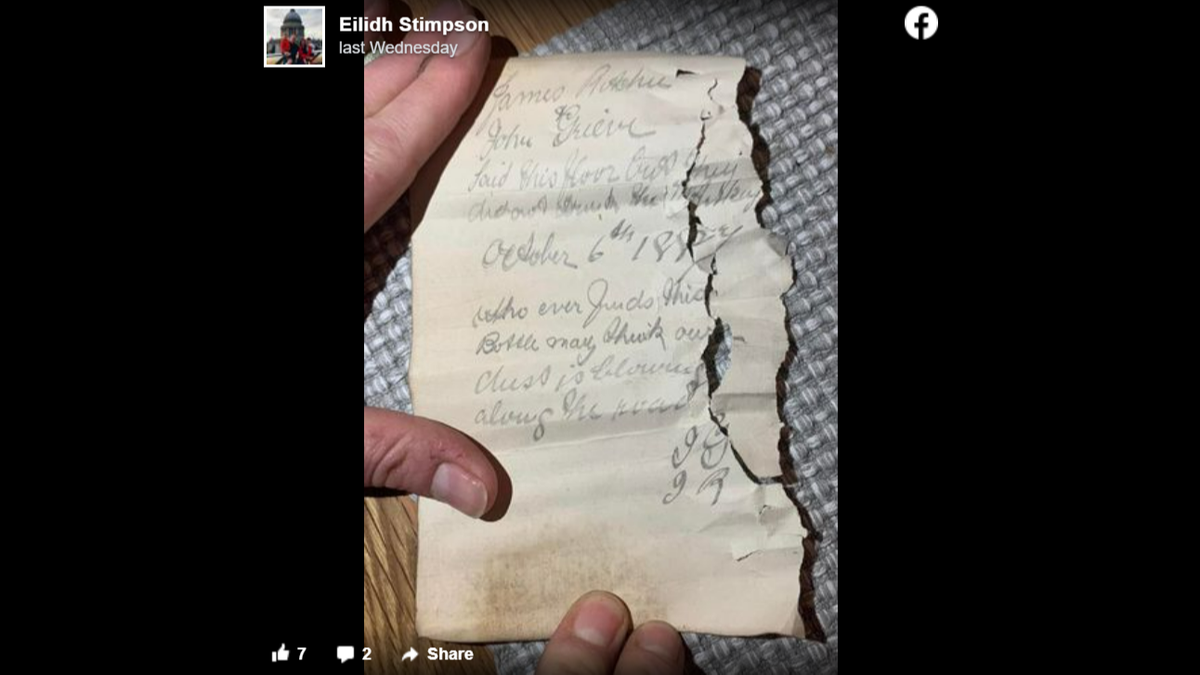 Eilidh Stimpson
last Wednesday
James Ritchie
&
John Grieve
laid this floor but they
did not drink the whisky
October 6th 1887
who ever finds this
Bottle may think our
dust is blowing
along the road
J G
J R
7
2
Share